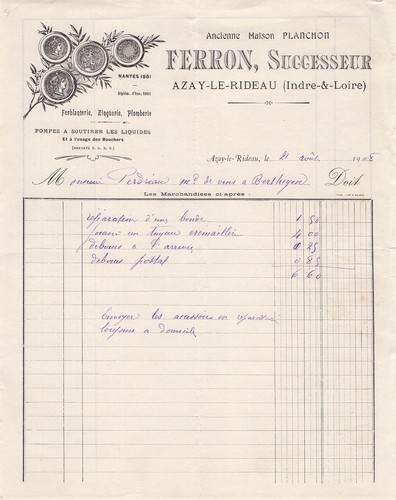 Ancienne Maison PLANCHON
FERRON, SUCCESSEUR
AZAY-LE-RIDEAU (Indre-&-Loire)
NANTES 1881
Diplôm. d'hon. 1881
Ferblanterie, Zinguerie, Plomberie
POMPES A SOUTIRER LES LIQUIDES
Et à l'usage des Bouchers
(BREVETÉ S. G. D. G.)
Azay-le-Rideau, le 21 août 190
Monsieur Perdriau md de vins à Berthegon Doit
Les Marchandises ci-après:
réparation d'une bonde 1 50
un tuyau 4 00
debours a l' 0 25
debours postal 0 85
6 60
Envoyer les accessoires en réparation
toujours a domicile